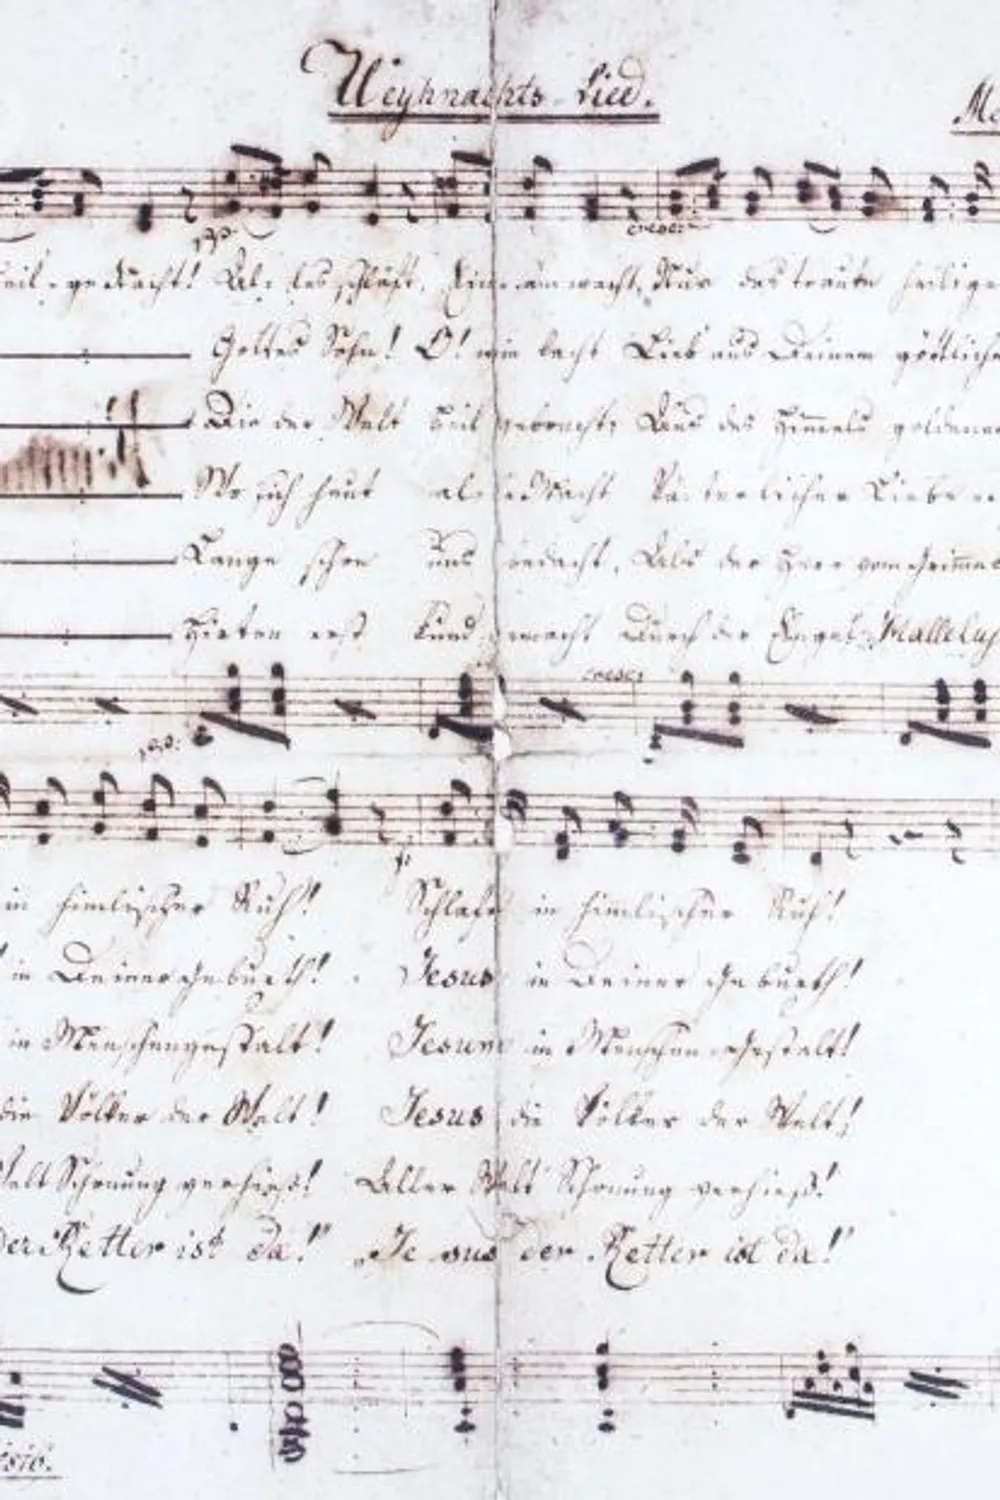 Weyhnachts-Lied.
Me
pp:
cresc:
heili-ge Nacht! Al-les schläft, Einsam wacht, Nur das traute heilige
Gottes Sohn! O! wie lacht Lieb' aus Deinem göttlichen
Die der Welt Heil gebracht, Aus des Himmels goldenen
Wo sich heut alle Macht Väterlicher Liebe
Lange schon Uns bedacht, Als der Herr vom Grimme
Hirten erst Kund gemacht Durch der Engel Halleluj
cresc:
pp:
p
in himlischer Ruh! Schlafe in himlischer Ruh!
in Deiner Geburth! Jesus in Deiner Geburth!
in Menschengestalt! Jesum in Menschengestalt!
die Völker der Welt! Jesus die Völker der Welt!
Welt Schonung verhieß! Aller Welt Schonung verhieß!
der Retter ist da!" "Jesus der Retter ist da!"